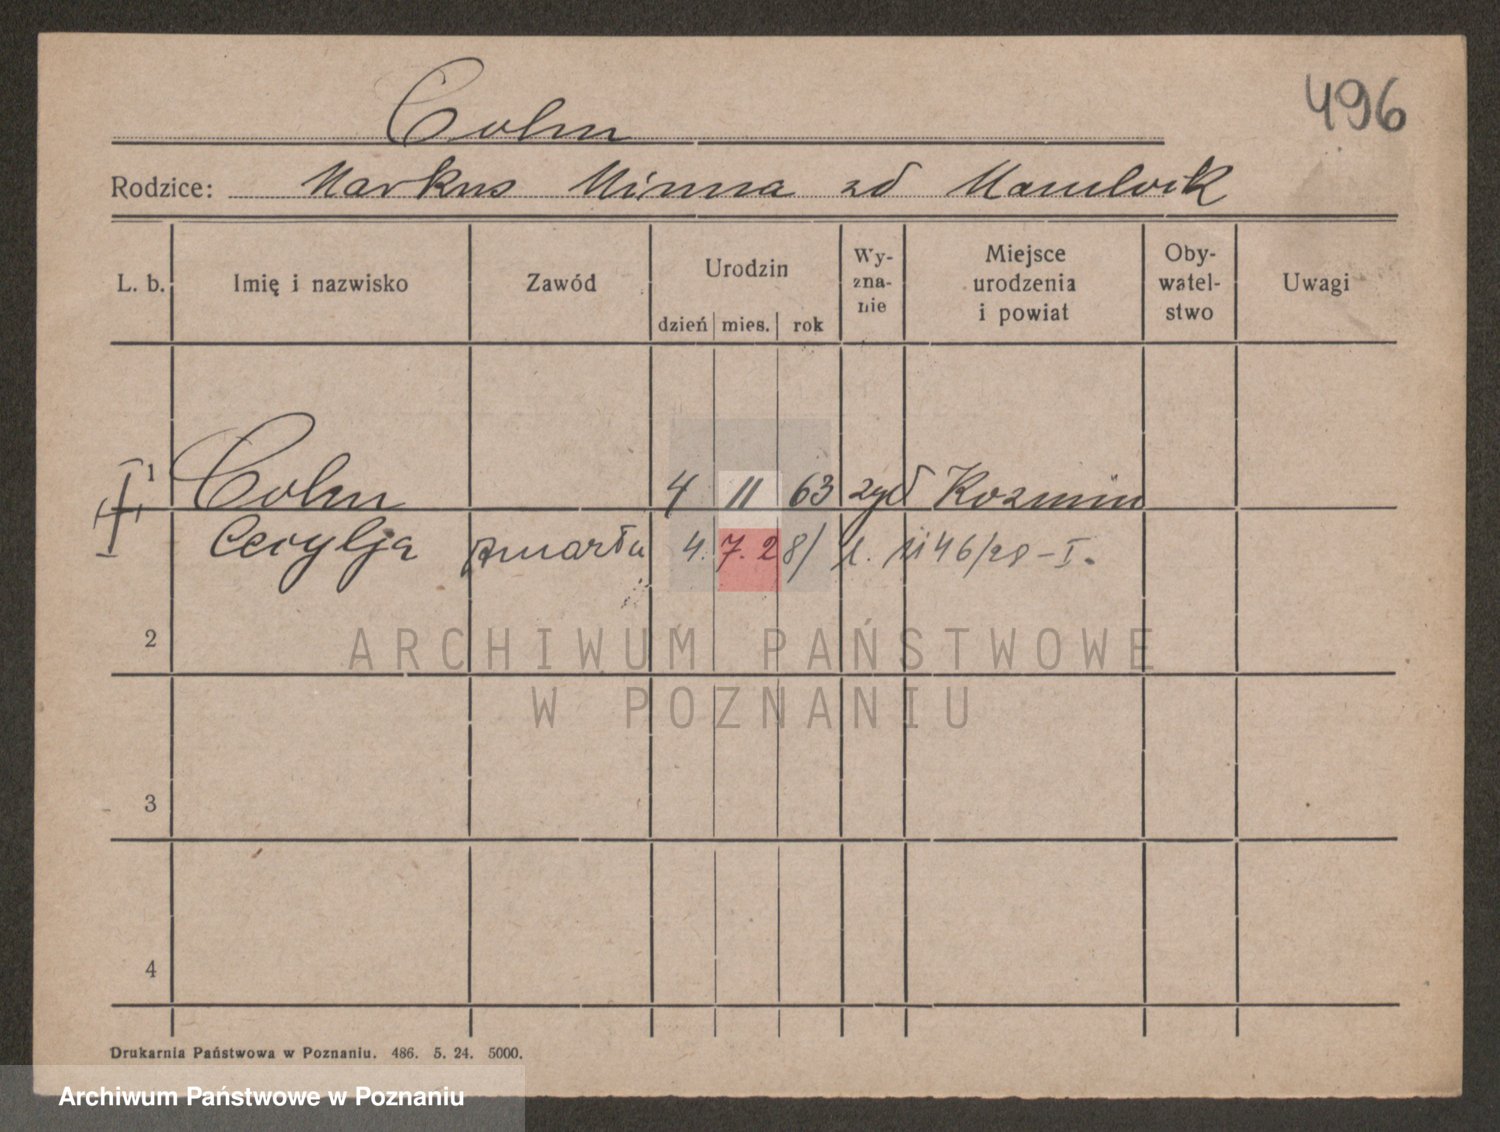 496
Cohn
Rodzice: Markus Minna zd
L. b. Imię i nazwisko Zawód Urodzin dzień mies. rok Wy-zna-nie Miejsce urodzenia i powiat Oby-watel-stwo Uwagi
1 Cohn 4 11 63 żyd Kozmin
Cecylja zmarła 4. 7. 28/ 1146/28 - I.
2
ARCHIWUM PAŃSTWOWE
W POZNANIU
3
4
Drukarnia Państwowa w Poznaniu. 486. 5. 24. 5000.
Archiwum Państwowe w Poznaniu